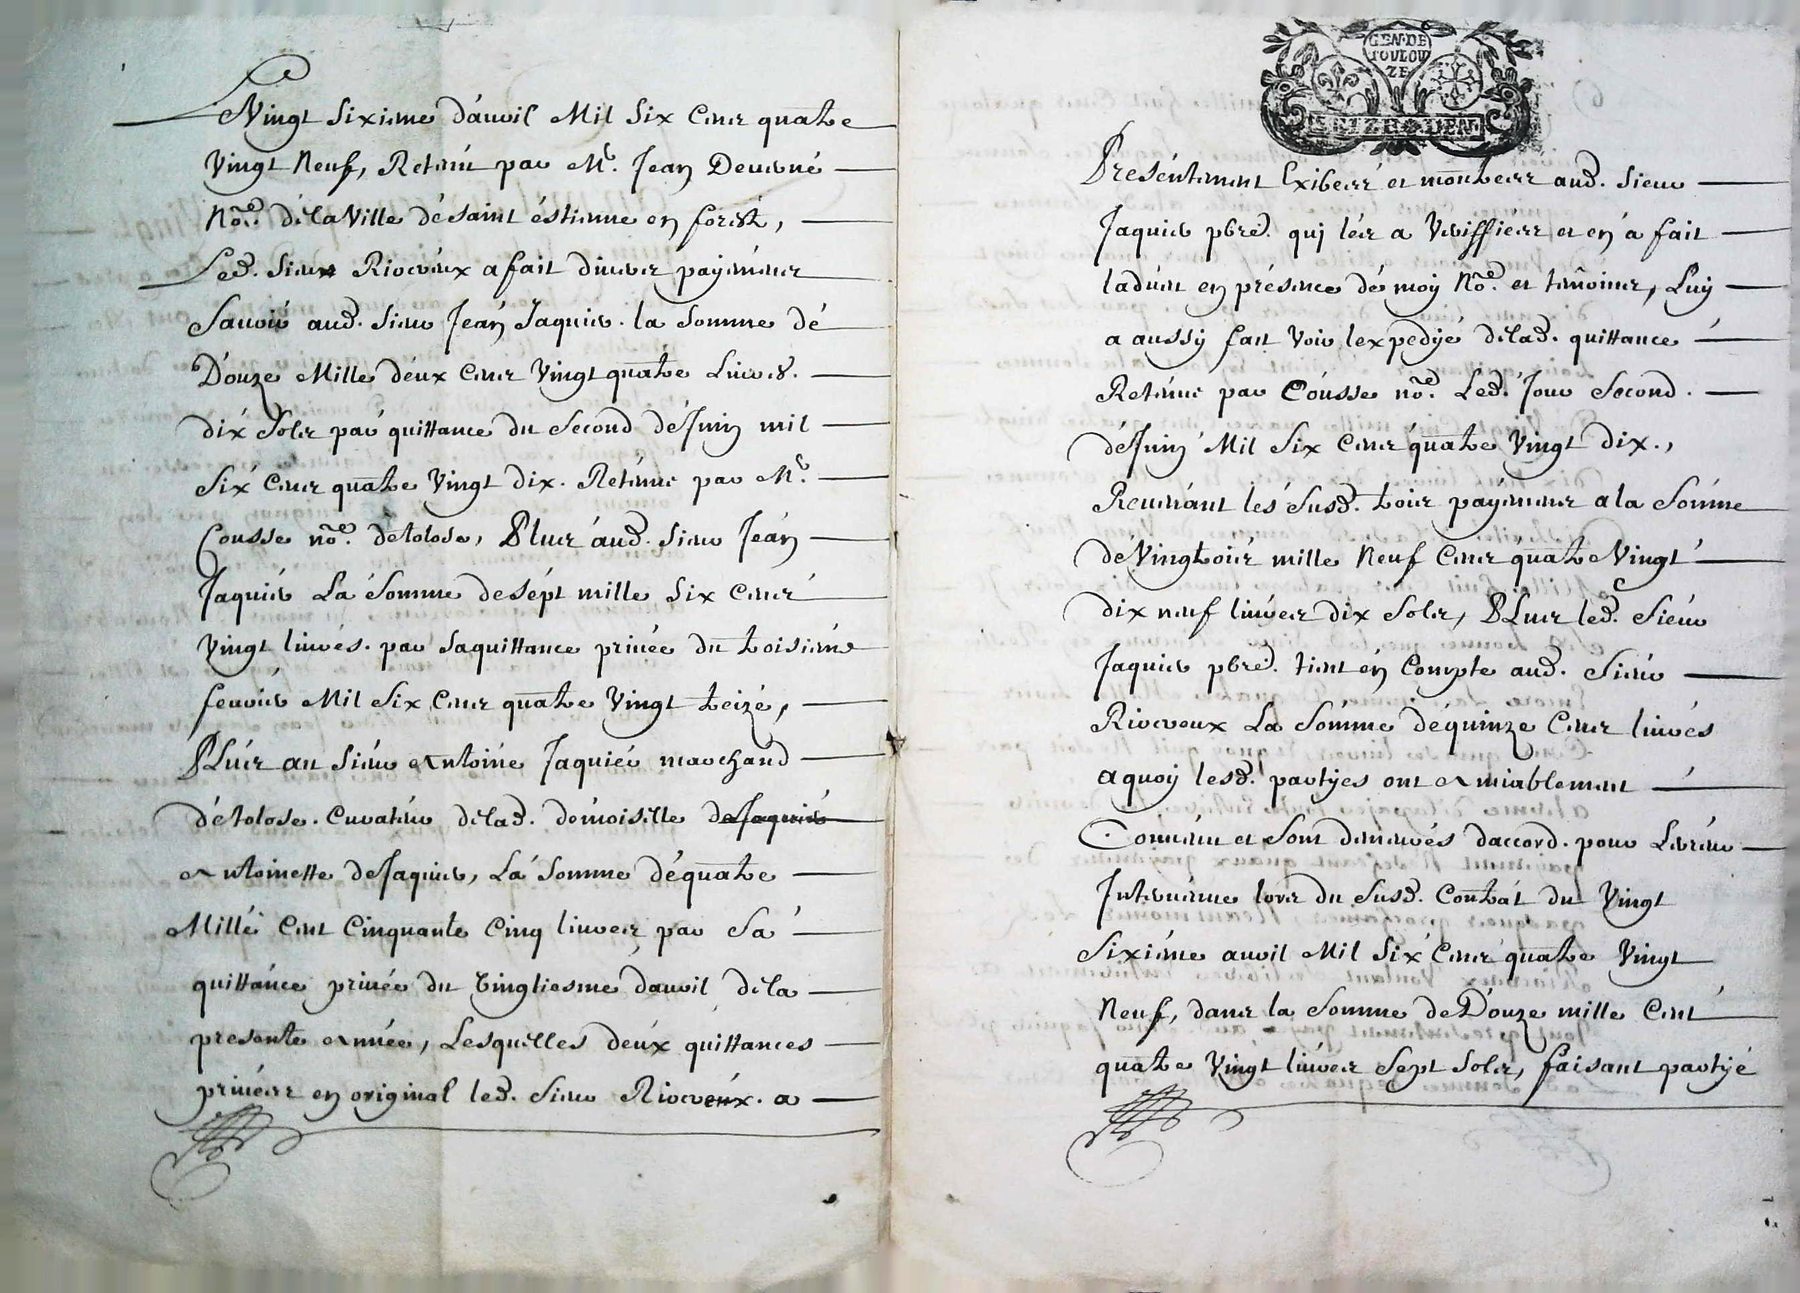 Vingt sixieme d'auril Mil Six Cens quatre
Vingt Neuf, Retenu par Me. Jean Deuerné
Nore. dela Ville de saint estienne en forest,
Led. Sieur Riocreux a fait diuers payemens
Sauoir aud. sieur Jean Jaquier. la somme de
Douze Mille deux Cens Vingt quatre Liures.
dix Sols par quittance du Second de Juin mil
Six Cens quatre Vingt dix. Retenue par Me.
Cousse nore. detolose, Plus aud. sieur Jean
Jaquier La Somme de sept mille six cens
Vingt liures. par saquittance priuée du troisieme
feurier Mil Six Cens quatre Vingt treize,
Plus au Sieur Antoine Jaquier marchand
detolose. Curateur delad. demoiselle de Jaquier
Antoinette deJaquier, La Somme de quatre
Mille Cent Cinquante Cinq liures par Sa
quittance priuée du Vingtiesme dauril dela
presente Année, Lesquelles deux quittances
priuées en original led. Sieur Riocreux. a
GEN. DE
TOULOU
ZE
SEIZE DEN
Presentement Exibées et montrées aud. Sieur
Jaquier pbre. quj les a Veriffiées et en a fait
ladueu en présence de moy Nore. et temoins, Luy
a aussy fait Voir lexpedyé delad. quittance
Retenue par Cousse nore. Led. Jour Second.
de Juin Mil Six Cens quatre Vingt dix.,
Reuenant les susd. trois payemens a la Somme
de Vingt trois mille Neuf Cens quatre Vingt
dix neuf liures dix Sols, Plus led. Sieur
Jaquier pbre. tient en Compte aud. Sieur
Riocreux La Somme de quinze Cens liures
aquoy lesd. partyes ont Amiablement
Conuenu et sont demeurés daccord. pour Lerreur
Interuenue lors du Susd. Contrat du Vingt
Sixiéme auril Mil Six Cens quatre Vingt
Neuf, dans la Somme de Douze mille Cent
quatre Vingt liures Sept Sols, faisant partyé